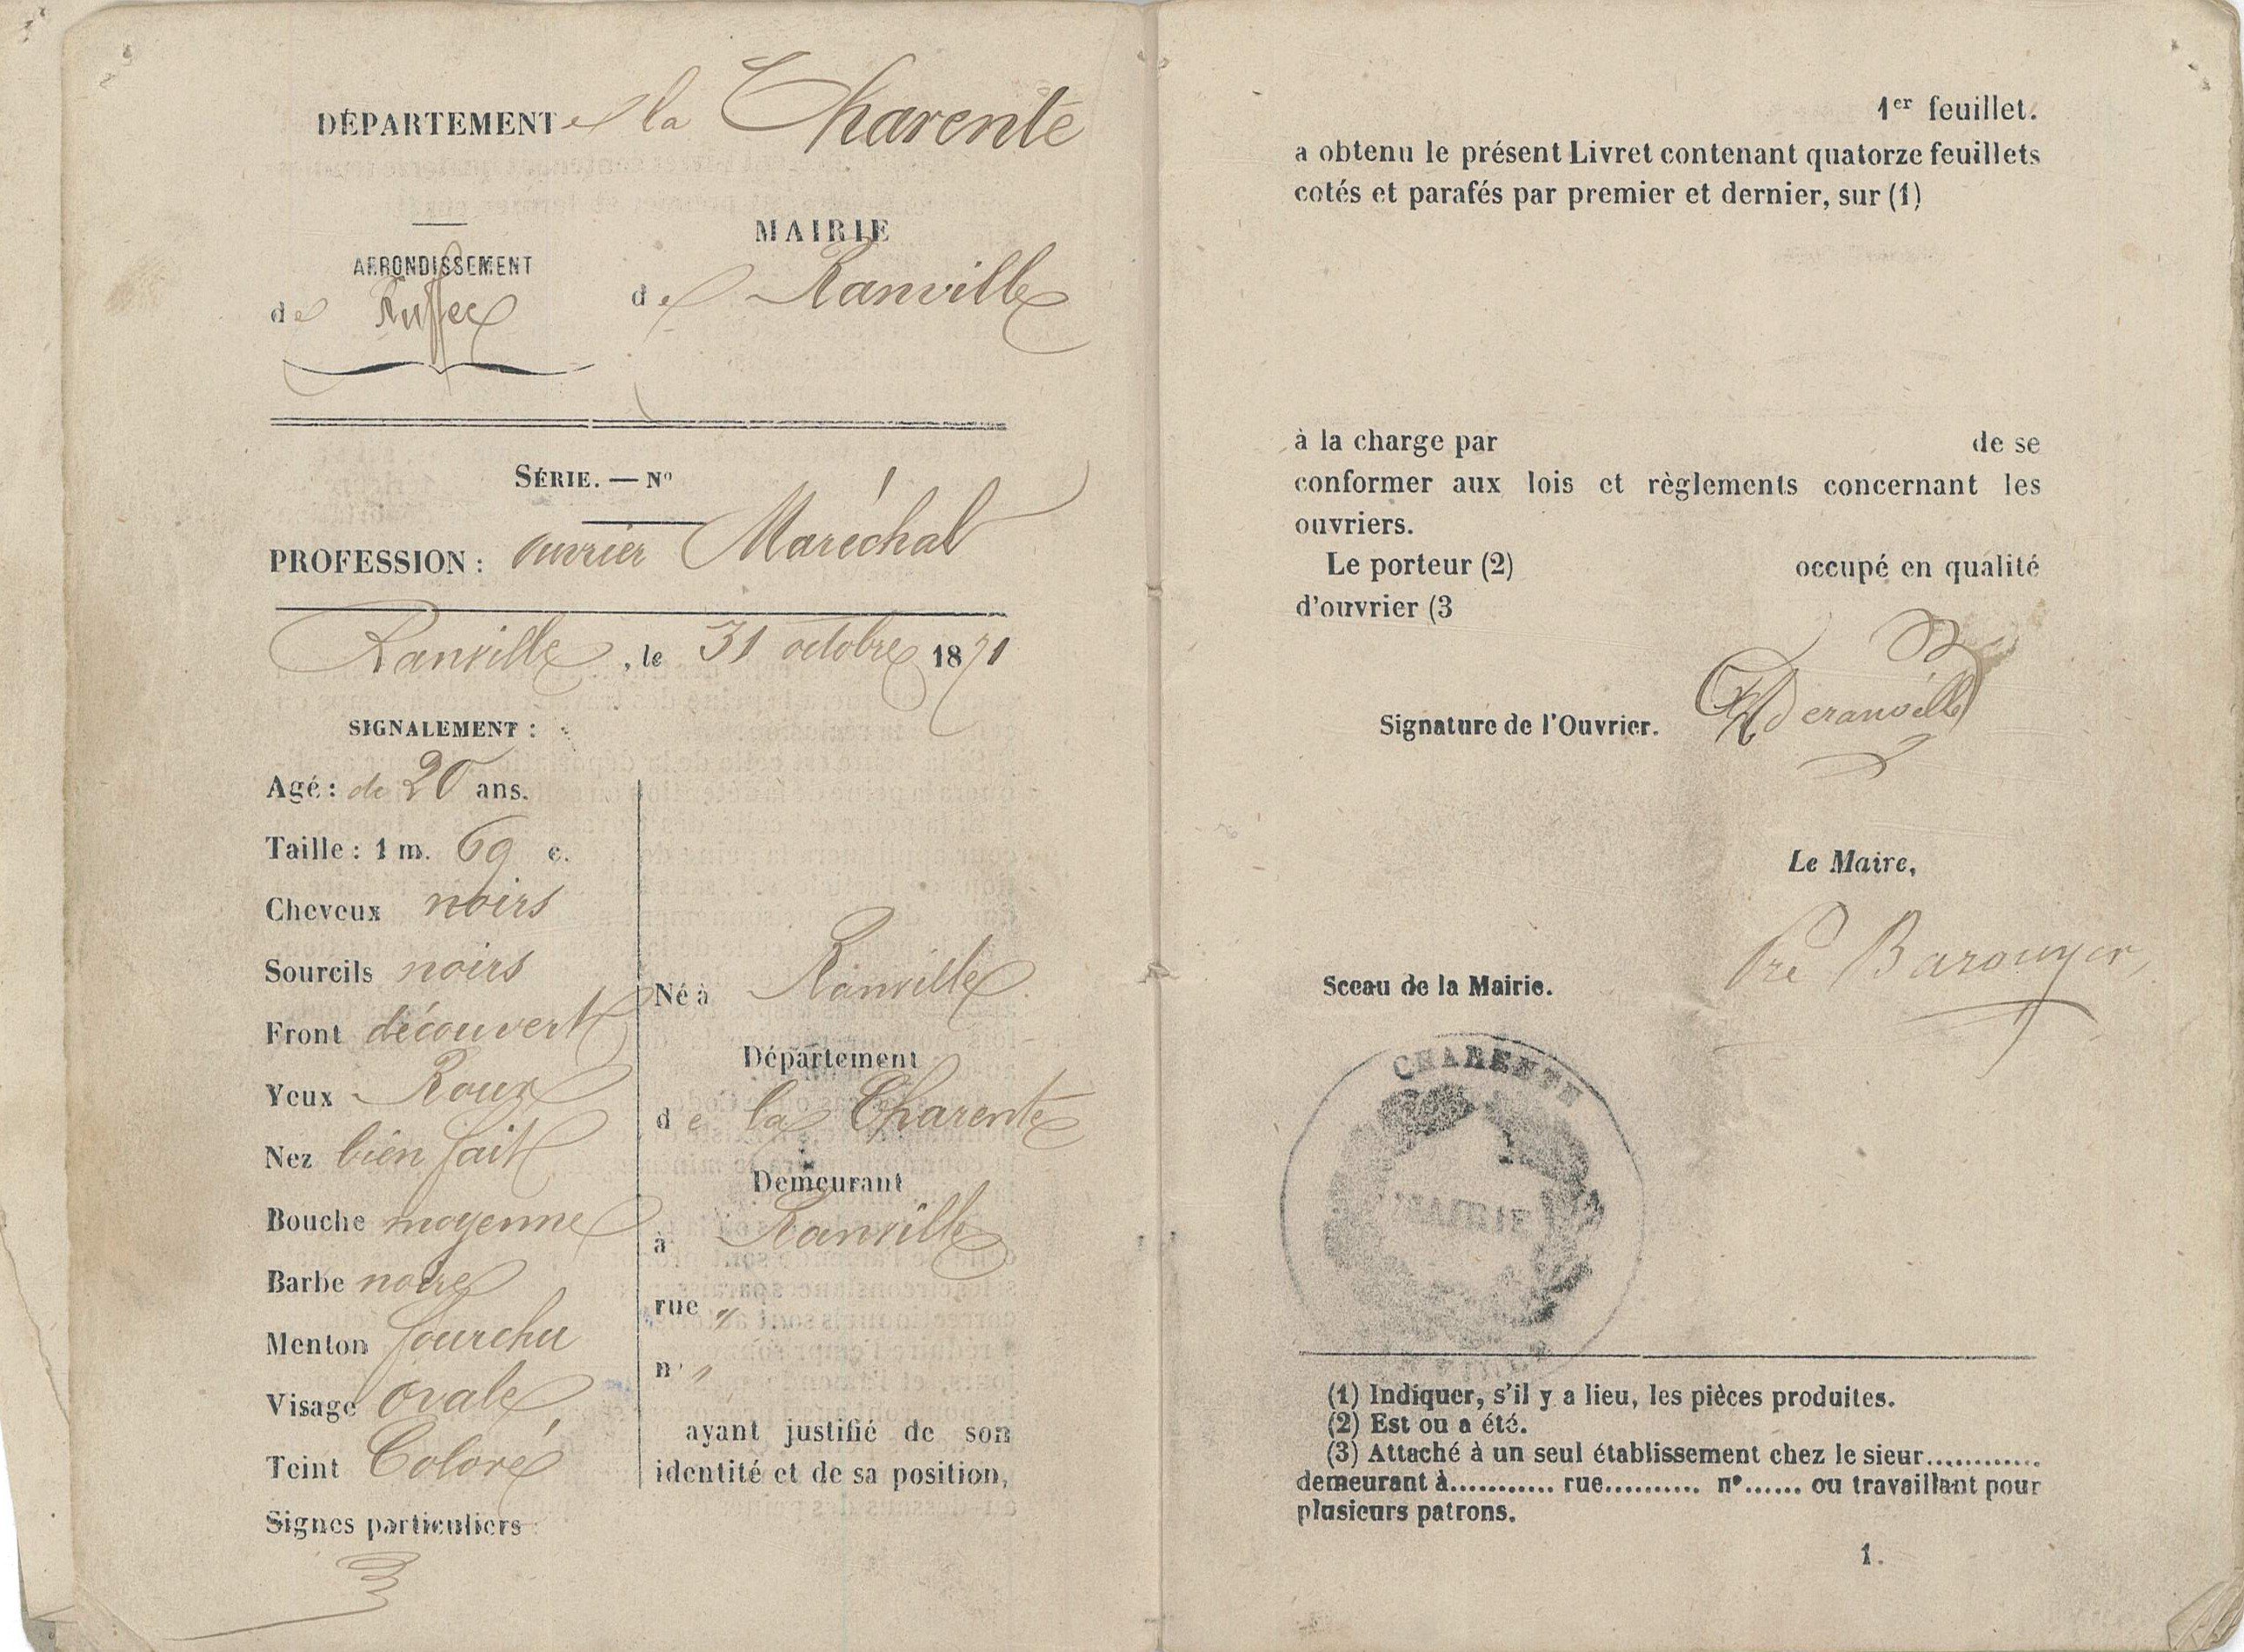 DÉPARTEMENT de la Charente
MAIRIE
ARRONDISSEMENT
de Ruffec
de Ranville
SÉRIE. — Nº
PROFESSION : ouvrier Maréchal
Ranville, le 31 octobre 1871
SIGNALEMENT :
Agé : de 20 ans.
Taille : 1 m. 69 c.
Cheveux noirs
Sourcils noirs
Front découvert
Yeux Roux
Nez bien fait
Bouche moyenne
Barbe noire
Menton fourchu
Visage ovale
Teint Coloré
Signes particuliers
Né à Ranville
Département
de la Charente
Demeurant
à Ranville
rue "
nº "
ayant justifié de son
identité et de sa position,
1er feuillet.
a obtenu le présent Livret contenant quatorze feuillets
cotés et parafés par premier et dernier, sur (1)
à la charge par de se
conformer aux lois et règlements concernant les
ouvriers.
Le porteur (2) occupé en qualité
d'ouvrier (3
Signature de l'Ouvrier. Deranville
Le Maire,
Sceau de la Mairie.
CHARENTE
MAIRIE
(1) Indiquer, s'il y a lieu, les pièces produites.
(2) Est ou a été.
(3) Attaché à un seul établissement chez le sieur............
demeurant à........... rue.......... nº...... ou travaillant pour
plusieurs patrons.
1.